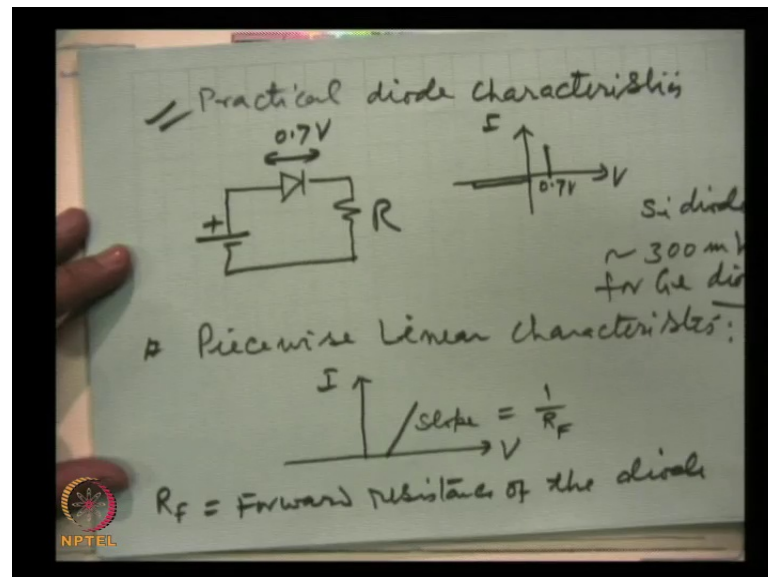 Practical diode characteristics
0.7V
+
R
I
0.7V
V
Si diode
~ 300 m
for Ge dio
Piecewise Linear characteristics:
I
slope = 1/R_F
V
R_F = Forward resistance of the diode
NPTEL